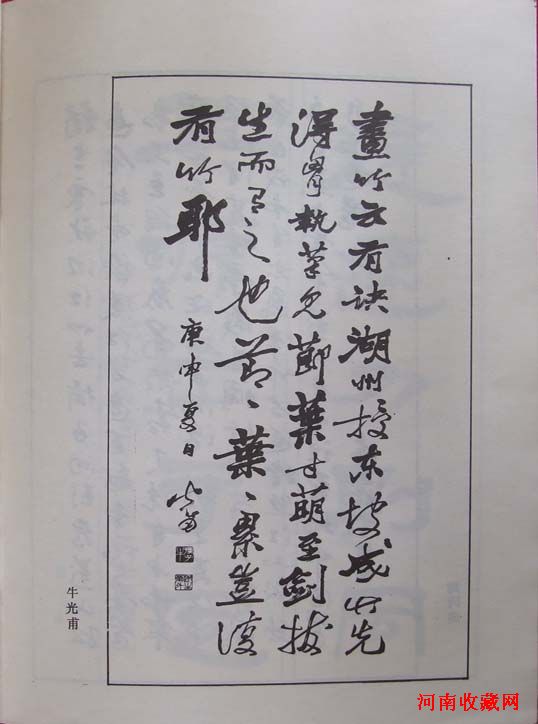 畫竹云有訣湖州授東坡成竹先
得胷執筆節葉寸萌至劍拔
生而有之也節〻葉〻累豈復
有竹耶
庚申夏日
牛光甫
河南收藏网